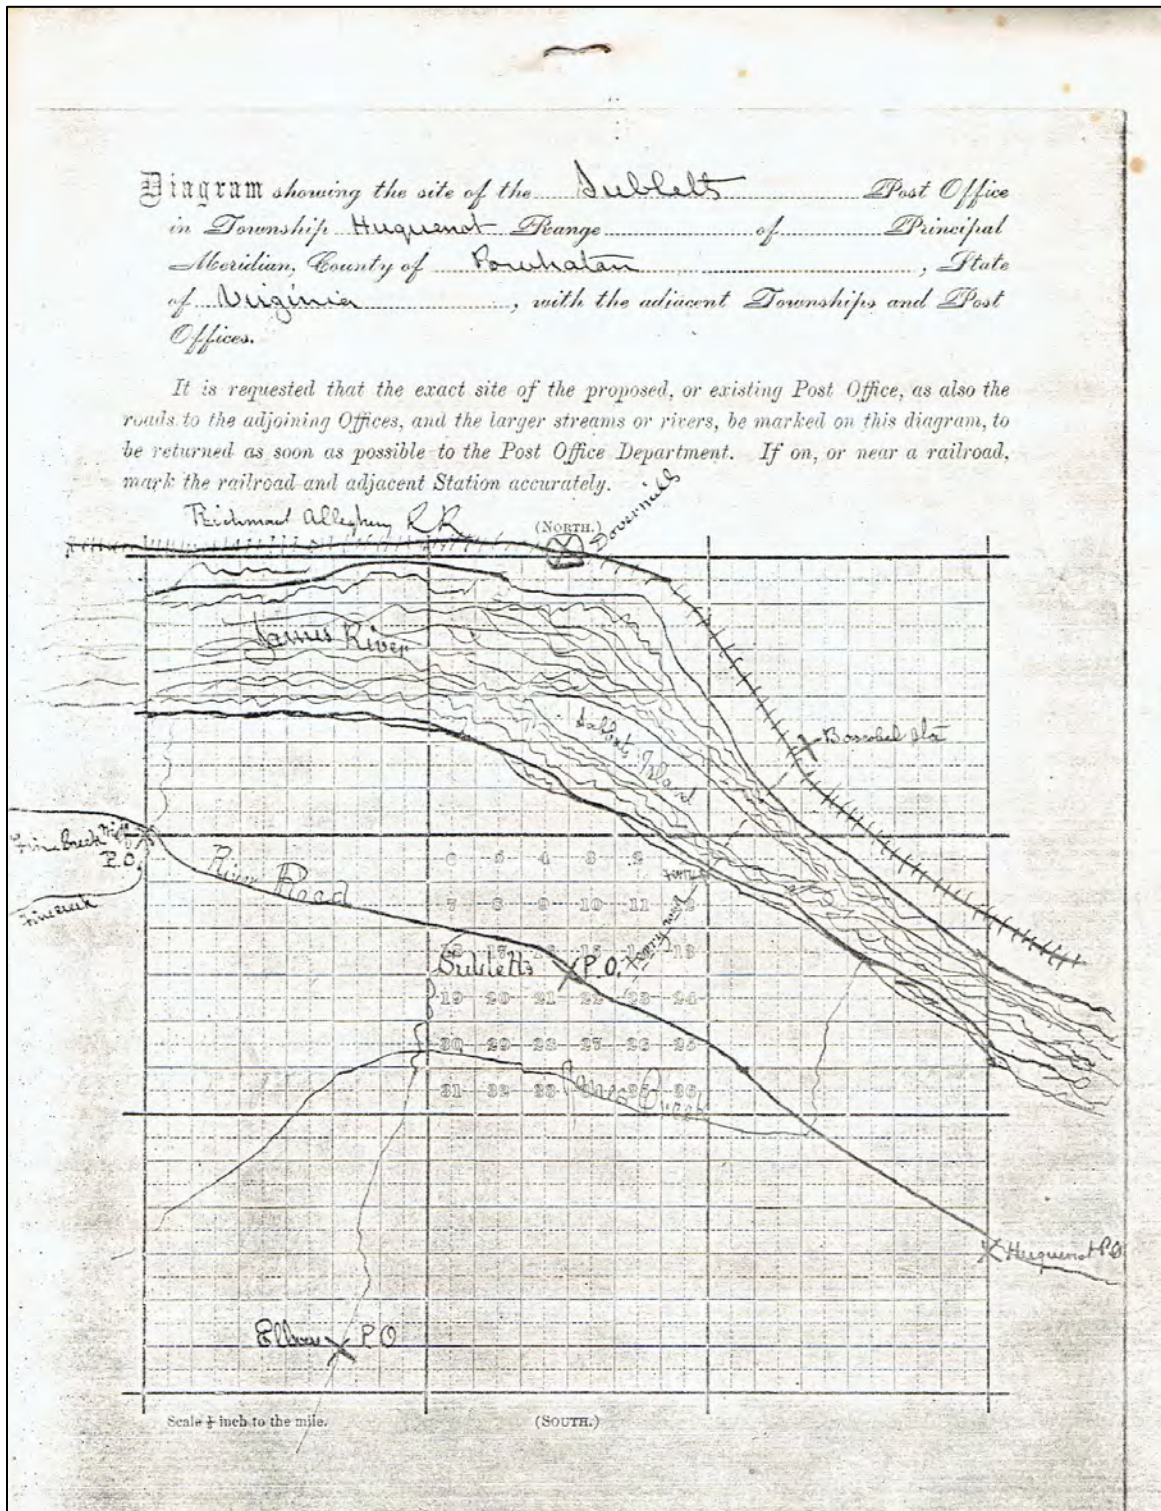 Diagram showing the site of the Subletts Post Office
in Township Huguenot Range of Principal
Meridian, County of Powhatan, State
of Virginia, with the adjacent Townships and Post
Offices.
It is requested that the exact site of the proposed, or existing Post Office, as also the
roads to the adjoining Offices, and the larger streams or rivers, be marked on this diagram, to
be returned as soon as possible to the Post Office Department. If on, or near a railroad,
mark the railroad and adjacent Station accurately.
Richmond Alleghany R R
(NORTH.)
Dover Mills
James River
Island
Boscobel
Fine Creek
P.O.
River Road
Fine Creek
6 5 4 3 2
7 8 9 10 11 12
Ferry road
18 17 16 15 14 13
Subletts P.O.
19 20 21 22 23 24
30 29 28 27 26 25
31 32 33 34 35 36
Creek
Huguenot P.O
P O
Scale ½ inch to the mile.
(SOUTH.)